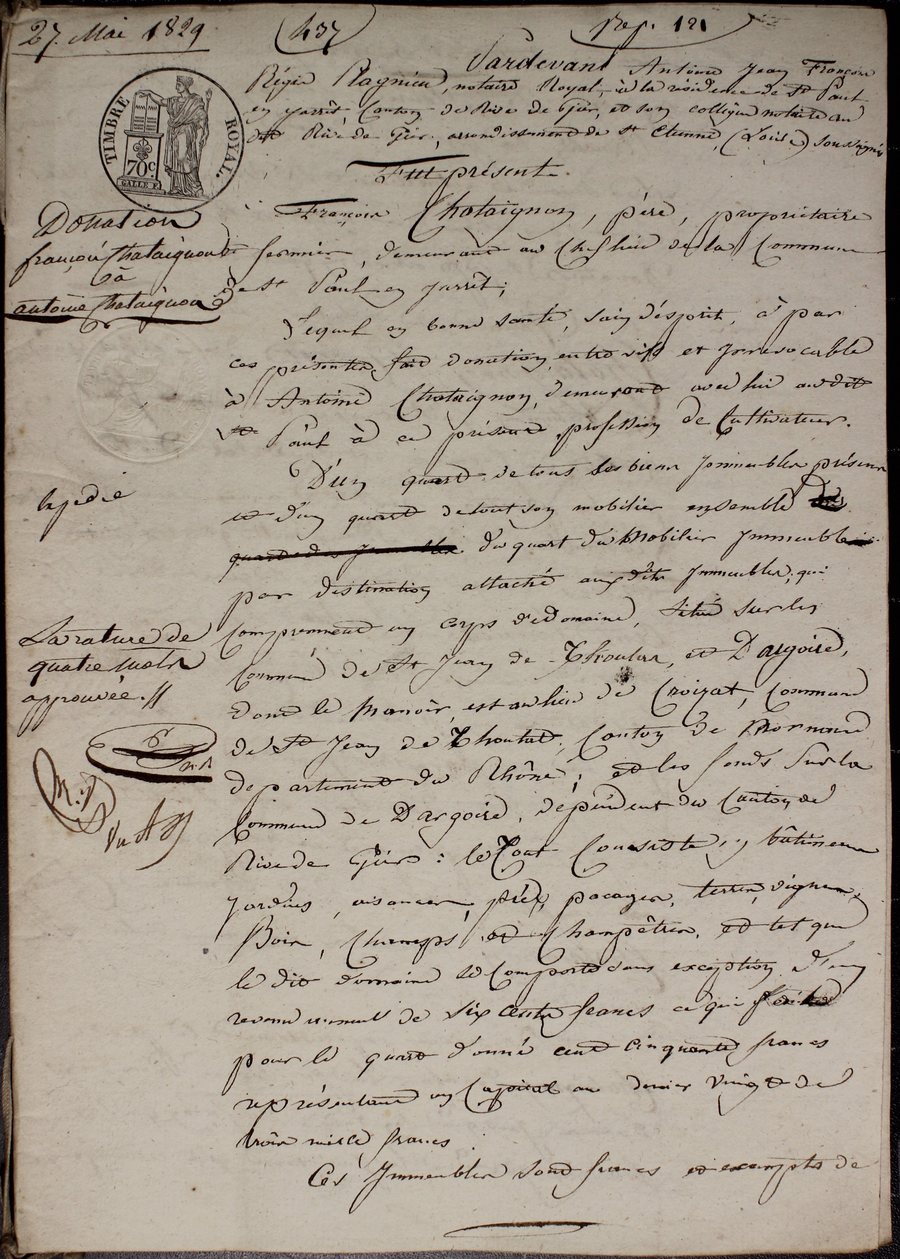 27. Mai 1829
437
Rep. 121
TIMBRE ROYAL.
70c
GALLE F.
Pardevant Antoine Jean François
Régis Ragnieu, notaire Royal, à la résidence de St Paul
en jarrêt, Canton de Rive de Gier, et son collègue notaire au
dit Rive de Gier, arrondissement de St Etienne, (Loire) soussignés
Fut présent.
François Chataignon, père, propriétaire
fermier, demeurant au Chef lieu de la Commune
de St Paul en jarrêt;
Donation
françois Chataignon
à
antoine Chataignon
Lequel en bonne santé, sain d'esprit, à par
ces présentes fait donation entre vifs et irrevocable
à Antoine Chataignon, demeurant avec lui au dit
St Paul à ce présent, profession de Cultivateur.
D'un quart de tous les biens Immeubles présens
et d'un quart de tout son mobilier ensemble
du quart du Mobilier Immeuble
par destination attaché aux dits Immeubles; qui
comprennent un corps de domaine, situé sur les
Commune de St Jean de Thoulas, et Dargoire,
dont le manoir, est au lieu de Croizat, Commune
de St Jean de Thoulas, Canton de Mornand
departement du Rhône; et les fonds sur la
Commune de Dargoire, dépendent du Canton de
Rive de Gier: le Tout Consiste en bâtimens
jardins, aisances, prés, pacages, terres, vignes,
Bois, Champs et Champêtres, et tel que
le dit domaine se comporte sans exception, d'un
revenu annuel de six cents francs ce qui
pour le quart donné cent cinquante francs
représentant un Capital au denier vingt de
trois mille francs.
Ces Immeubles sont francs et exempts de
Expedié
La rature de
quatre mots
approuvée.